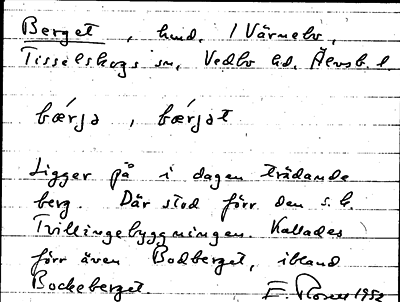 Berget, hmd. / Värnebo,
Tisselskogs sn, Vedbo hd. Älvsb. l
bærjə, bærjət
Ligger på i dagen trädande
berg. Där stod förr den s.k.
Tvillingebyggningen. Kallades
förr även Bodberget, ibland
Bockeberget. E Rosell 1952